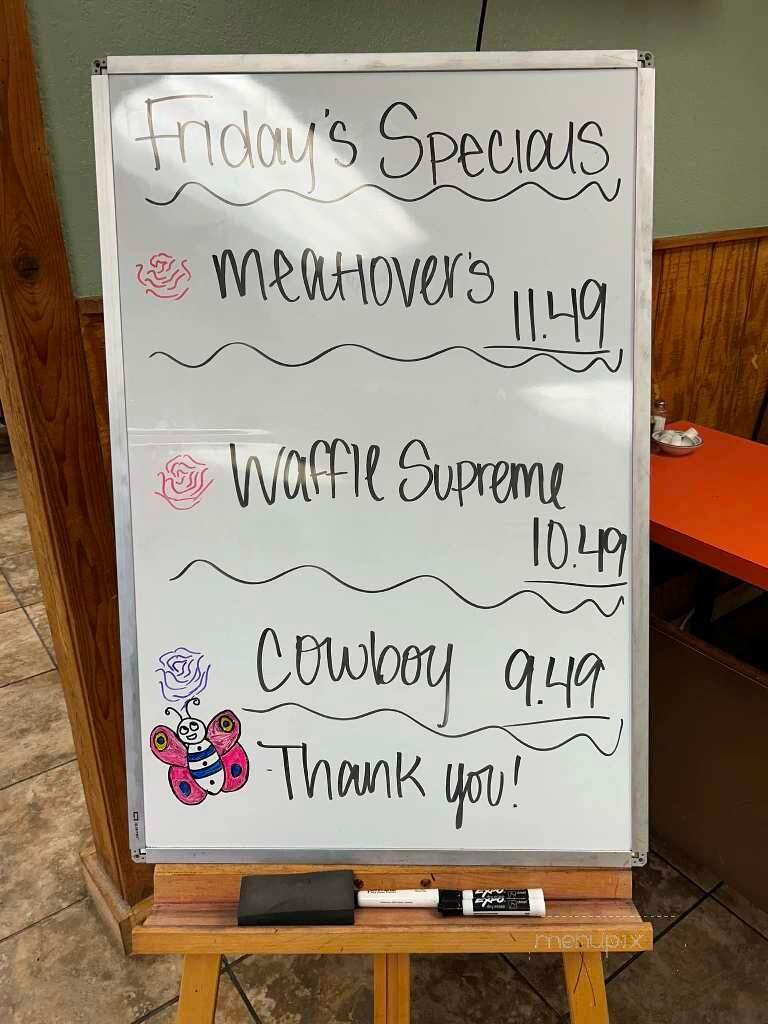 Friday's Specials
Meatlover's
11.49
Waffle Supreme
10.49
Cowboy 9.49
-Thank you!
EXPO
EXPO
menupix